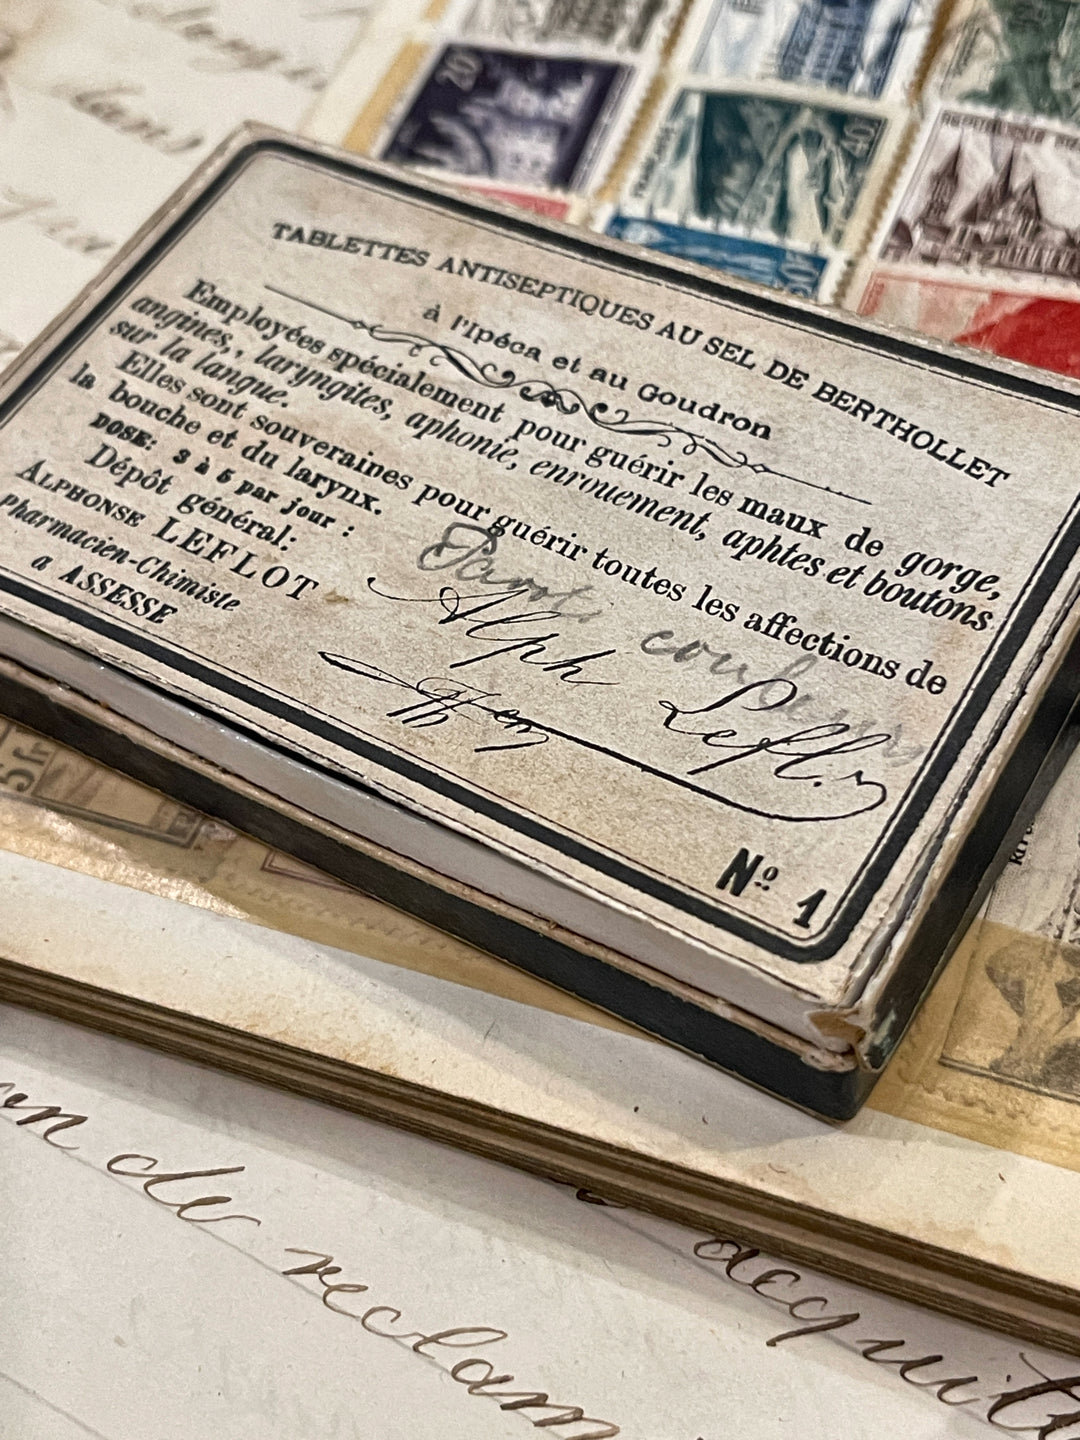 TABLETTES ANTISEPTIQUES AU SEL DE BERTHOLLET
à l'Ipéca et au Goudron
Employées spécialement pour guérir les maux de gorge,
angines,, laryngites, aphonie, enrouement, aphtes et boutons
sur la langue.
Elles sont souveraines pour guérir toutes les affections de
la bouche et du larynx.
DOSE: 3 à 5 par jour :
Dépôt général:
ALPHONSE LEFLOT
Pharmacien-Chimiste
a ASSESSE
Alph
No 1
20
40
5
de
reclam
acquit
dans